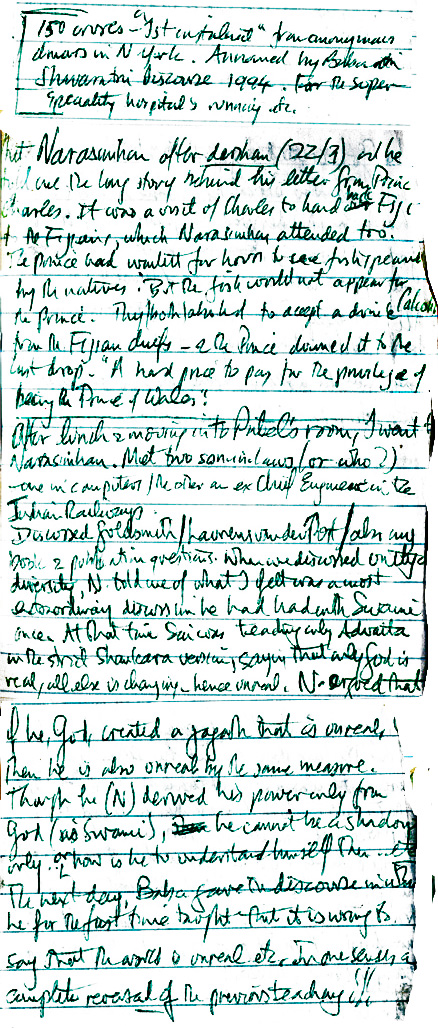 150 crores - "1st instalment" from anonymous
donors in N York. Announced by Baba in
Shivaratri discourse 1994. For the super-
speciality hospital's running etc.
Met Narasimhan after darshan (22/3) and he
told me the long story behind his letter from Prince
Charles. It was a visit of Charles to hand back Fiji
to the Fijians, which Narasimhan attended too.
The prince had to wait for hours to see fish speared
by the natives. But the fish would not appear for
the Prince. They both had to accept a drink (Calcou)
from the Fijian chiefs - & the Prince downed it to the
last drop. "A hard price to pay for the privilege of
being the Prince of Wales!
After lunch & moving into Patel's room, I went to
Narasimhan. Met two sons in laws (or who?)
- one in computers / the other an ex Chief Engineer in the
Indian Railways.
Discussed Goldsmith / Laurens van der Post / also my
book & publication questions. When we discussed unity &
diversity, N. told me of what I felt was a most
extraordinary discussion he had had with Swami
once. At that time Sai was teaching only Advaita
in the strict Shankara version, saying that only God is
real, all else is changing - hence unreal. N. argued that
if he, God, created a jagath that is unreal,
then he is also unreal by the same measure.
Though he (N) derived his power only from
God (is Swami), he cannot be a shadow
only. or how is he to understand himself then
The next day, Baba gave the discourse in
he for the first time taught - that it is wrong to
say that the world is unreal etc. In one sense a
complete reversal of the previous teaching!!!